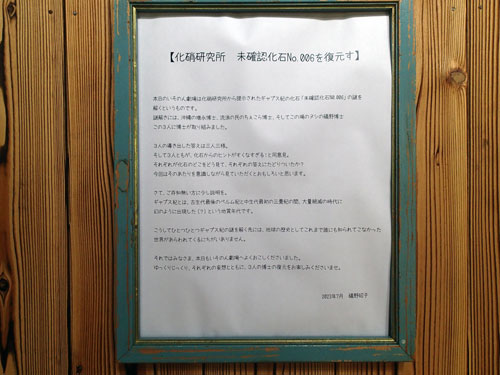 【化硝研究所　未確認化石No.006を復元す】
本日のいそのん劇場は化硝研究所から提示されたギャプス紀の化石「未確認化石NO.006」の謎を
解くというものです。
謎解きには、沖縄の
そして3人ともが、化石からのヒントがすくなすぎる！と同意見。
それぞれが化石のどこをどう見て、それぞれの答えにたどりついたか？
今回はそのあたりを意識しながら見ていただくとおもしろいと思います。
さて、ご存知無い方に少し説明を。
ギャプス紀とは、古生代最後のペルム紀と中生代最初の三畳紀の間、大量絶滅の時代に
幻のように出現した（？）という地質年代です。
こうしてひとつひとつギャプス紀の謎を解く先には、地球の歴史としてこれまで誰にも知られてこなかった
世界があらわれてくるにちがいありません。
それではみなさま、本日もいそのん劇場へようこそおこしくださいました。
ゆっくりじっくり、それぞれの妄想とともに、3人の博士の復元をお楽しみくださいませ。